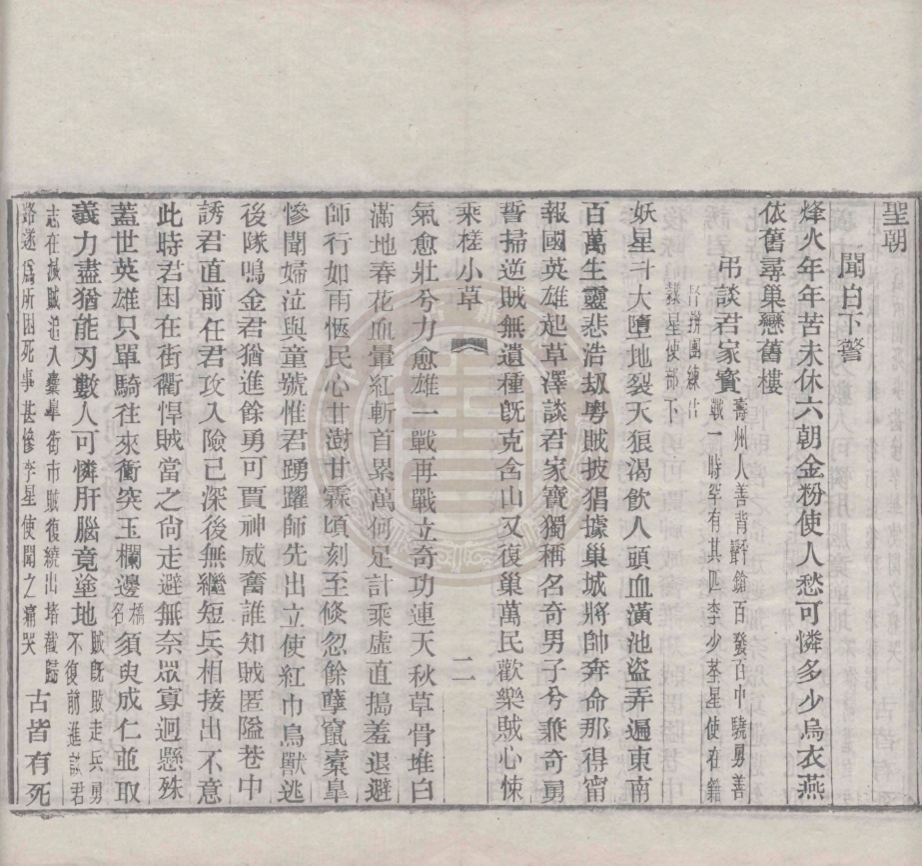 聖朝
聞白下警
烽火年年苦未休六朝金粉使人愁可憐多少烏衣燕
依舊尋巢戀舊樓
弔談君家寶
壽州人善背鎗百發百中驍勇善
戰一時罕有其匹李少荃星使在籍
督辦團練占
隸星使部下
妖星斗大墮地裂天狼渴飲人頭血潢池盜弄遍東南
百萬生靈悲浩刼粵賊披猖據巢城將帥奔命那得甯
報國英雄起草澤談君家寶獨稱名奇男子兮兼奇勇
誓掃逆賊無遺種旣克含山又復巢萬民歡樂賊心悚
乘槎小草
二
氣愈壯兮力愈雄一戰再戰立奇功連天秋草骨堆白
滿地春花血暈紅斬首累萬何足計乘虛直搗羞退避
師行如雨愜民心甘澍甘霖頃刻至倏忽餘孽竄橐臯
慘聞婦泣與童號惟君踴躍師先出立使紅巾鳥獸逃
後隊鳴金君猶進餘勇可賈神威奮誰知賊匿隘巷中
誘君直前任君攻入險已深後無繼短兵相接出不意
此時君困在街衢悍賊當之尙走避無奈眾寡迥懸殊
蓋世英雄只單騎往來衝突玉欄邊橋名須臾成仁並取
義力盡猶能刃數人可憐肝腦竟塗地賊旣敗走兵勇不復前進談君
志在滅賊追入橐臯街市賊復繞出堵截歸
路遂爲所困死事甚慘李星使聞之痛哭
古皆有死